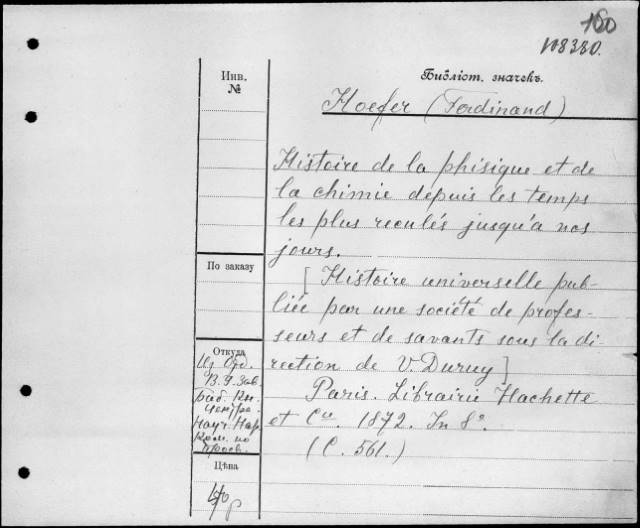 180
108380.
Инв.
№
Библіот. значекъ.
Hoefer (Ferdinand)
Histoire de la phisique et de
la chimie depuis les temps
les plus reculés jusqu'à nos
jours.
[Histoire universelle pub-
liée par une société de profes-
seurs et de savants sous la di-
rection de V. Duruy]
Paris. Librairie Hachette
et Cie. 1872. In 8°.
(С. 561.)
По заказу
Откуда
Науч. Нар.
Ком. по
Просв.
Цѣна